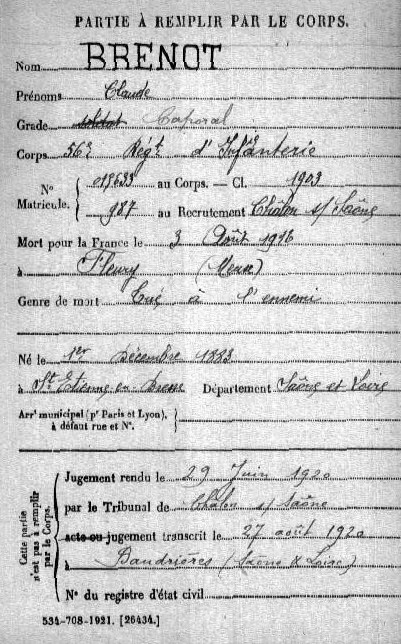 PARTIE À REMPLIR PAR LE CORPS.
Nom BRENOT
Prénoms Claude
Grade soldat Caporal
Corps 56e Régt d'Infanterie
N° Matricule. { 013633 au Corps. — Cl. 1903
987 au Recrutement Chalon s/ Saône
Mort pour la France le 3 Août 1916
à Fleury (Meuse)
Genre de mort Tué à l'ennemi
Né le 1er Décembre 1883
à St Etienne en Bresse Département Saône et Loire
Arrt municipal (pr Paris et Lyon), à défaut rue et N°. {
Cette partie n'est pas à remplir par le Corps. {
Jugement rendu le 29 Juin 1920
par le Tribunal de Chalon s/ Saône
acte ou jugement transcrit le 27 août 1920
à Baudrières (Saône & Loire)
N° du registre d'état civil
534-708-1921. [26434.]